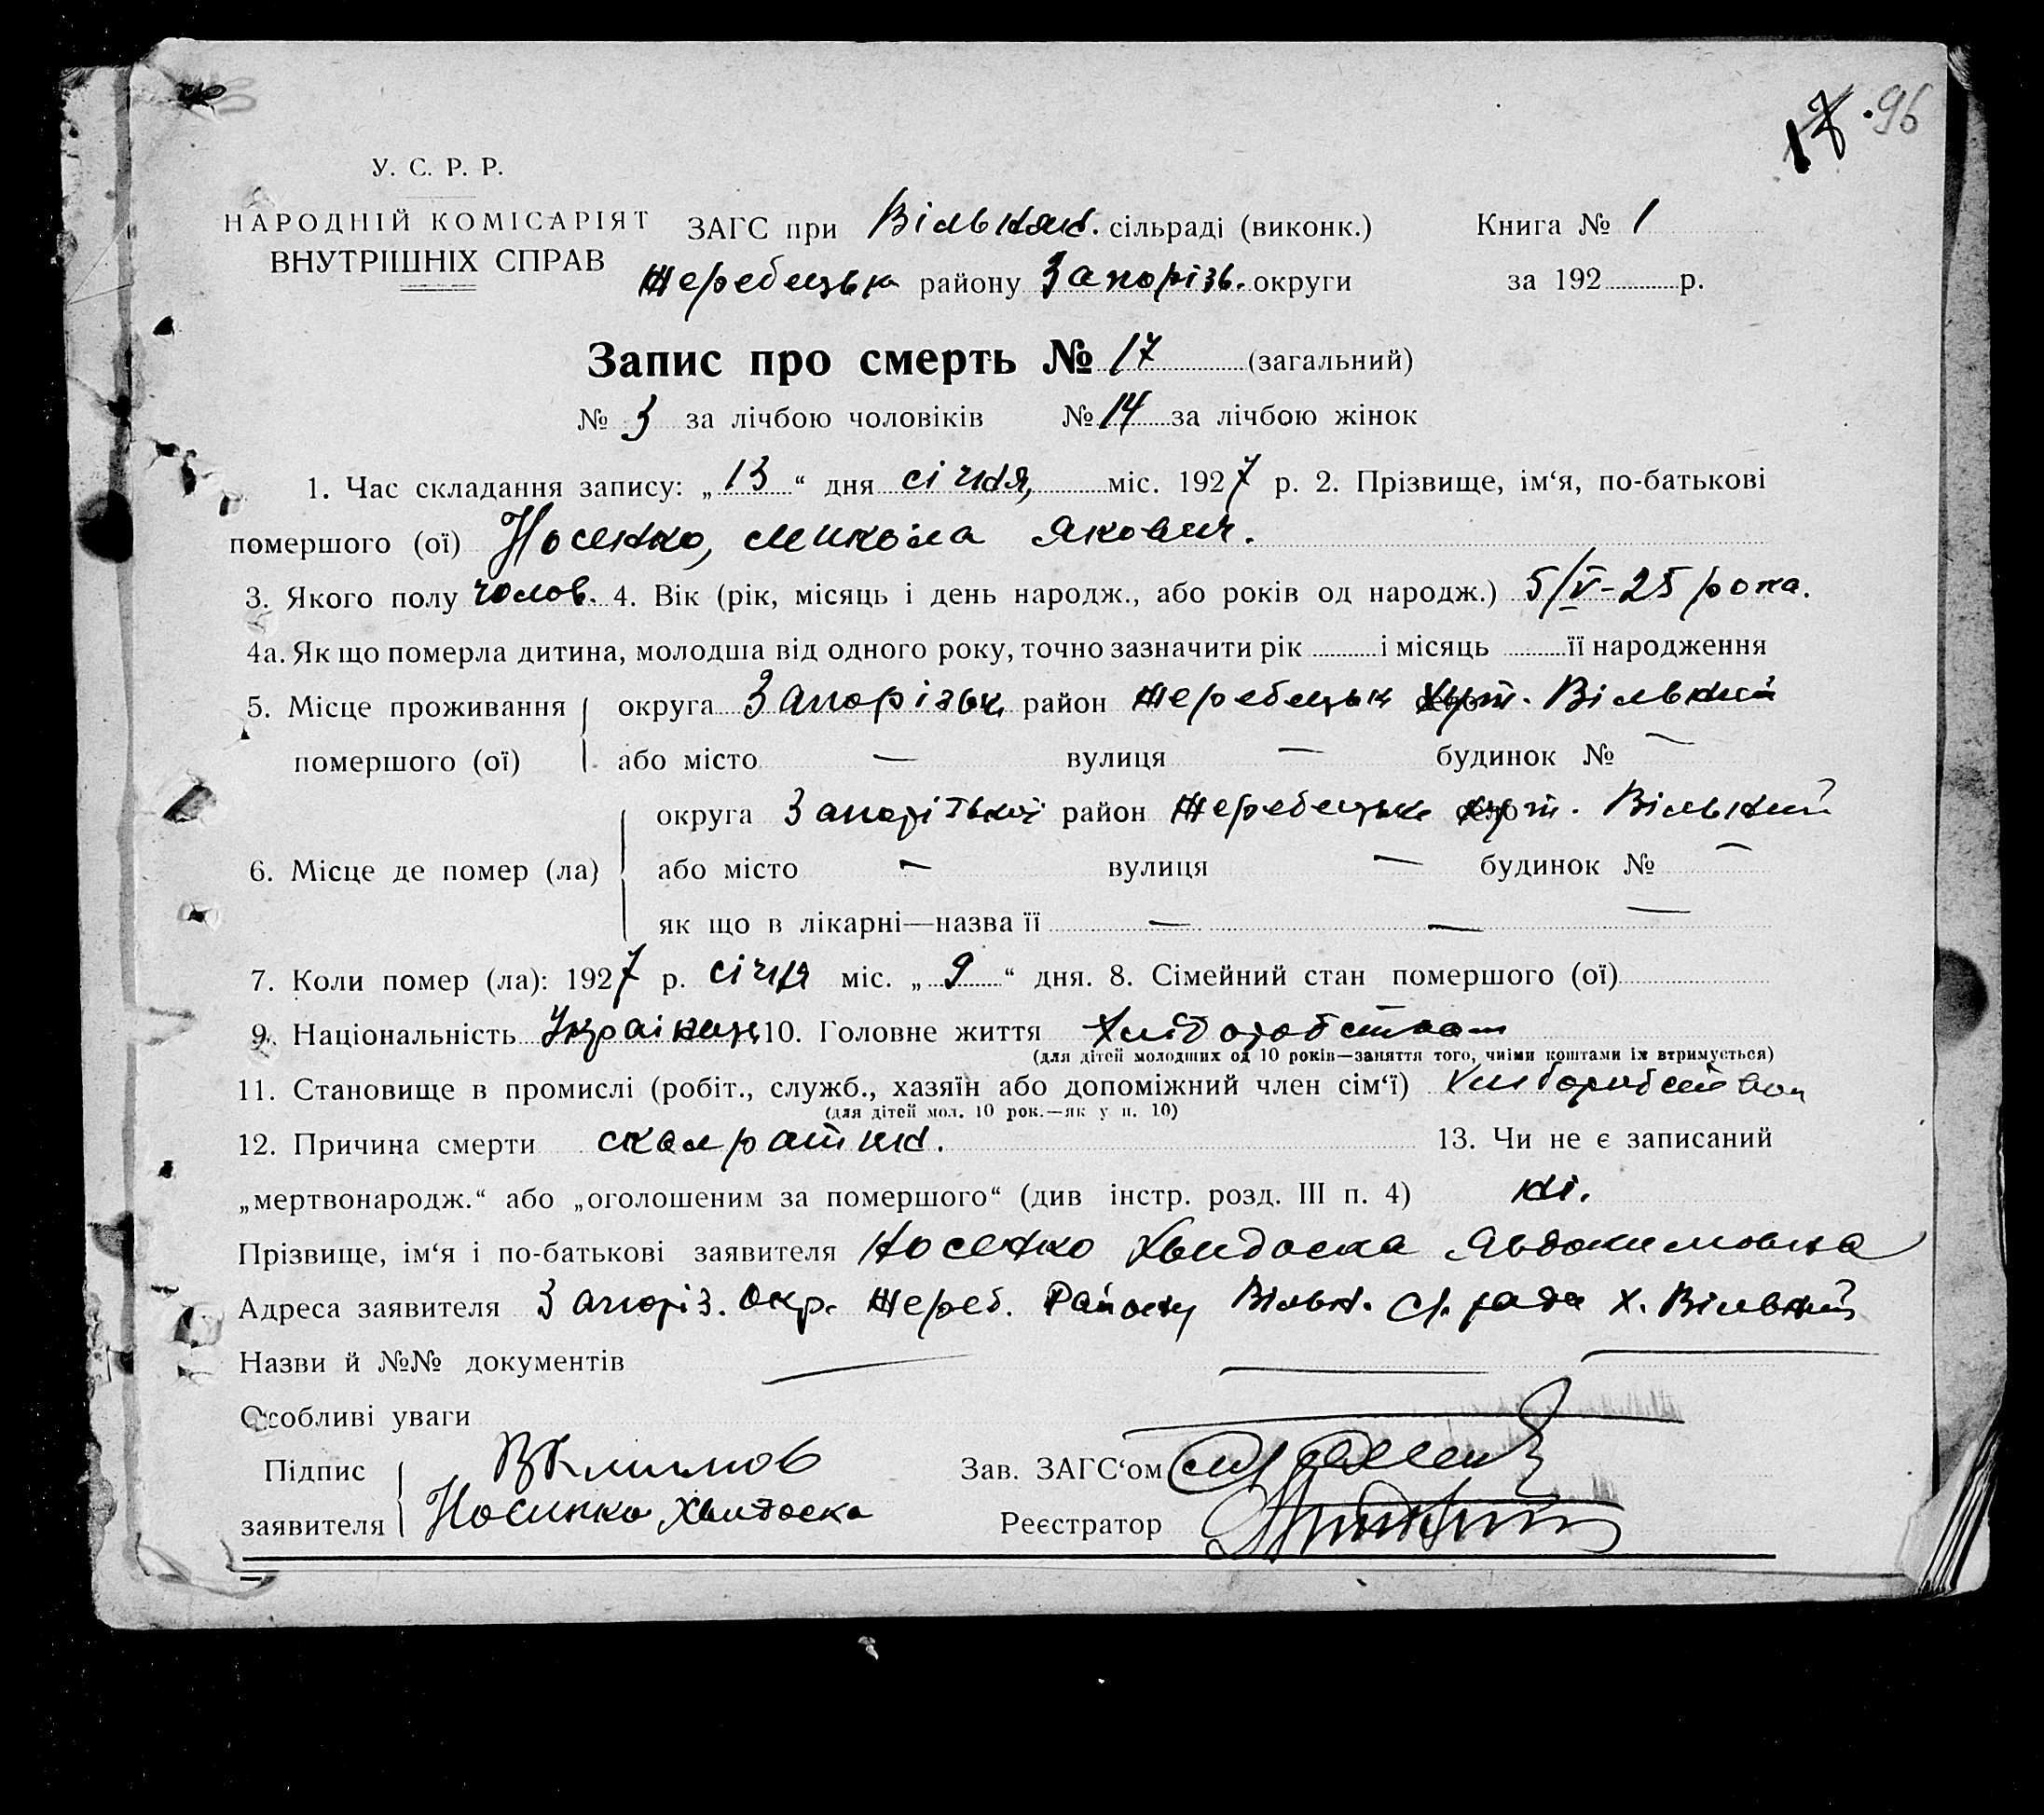 17 . 96
У. С. Р. Р.
НАРОДНІЙ КОМІСАРІЯТ
ВНУТРІШНІХ СПРАВ
ЗАГС при Вільнян. сільраді (виконк.) Книга № 1
Жеребецьк району Запорізь. округи за 192 р.
Запис про смерть № 17 (загальний)
№ 3 за лічбою чоловіків № 14 за лічбою жінок
1. Час складання запису: „13“ дня січня, міс. 1927 р. 2. Прізвище, ім‘я, по-батькові
помершого (ої) Носенко, Микола Якович.
3. Якого полу чолов. 4. Вік (рік, місяць і день народж., або років од народж.) 5/V-25 рока.
4а. Як що померла дитина, молодша від одного року, точно зазначити рік і місяць її народження
5. Місце проживання помершого (ої) округа Запорізьк район Жеребецьк хут. Вільний
або місто — вулиця — будинок № —
6. Місце де помер (ла) округа Запорізької район Жеребецьк хут. Вільний
або місто — вулиця — будинок № —
як що в лікарні—назва її — — —
7. Коли помер (ла): 1927 р. січня міс. „9“ дня. 8. Сімейний стан помершого (ої)
9. Національність Українец 10. Головне життя Хліборобством
(для дітей молодших од 10 років—заняття того, чиїми коштами їх втримується)
11. Становище в промислі (робіт., служб., хазяїн або допоміжний член сім‘ї) Хліборобством
(для дітей мол. 10 рок.—як у п. 10)
12. Причина смерти скалратина. 13. Чи не є записаний
„мертвонародж.“ або „оголошеним за помершого“ (див інстр. розд. III п. 4) ні.
Прізвище, ім‘я і по-батькові заявителя Носенко Хвидоска Явдокимовна
Адреса заявителя Запоріз. Окр. Жереб. Району Вільн. с/рада Х. Вільний
Назви й №№ документів — — —
Особливі уваги
Підпис заявителя ВКлимов Зав. ЗАГС‘ом
Носинко Хвидоска Реєстратор